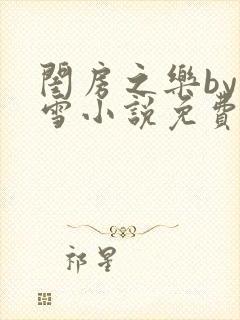 閨房之樂by
雪小說免費
祁星